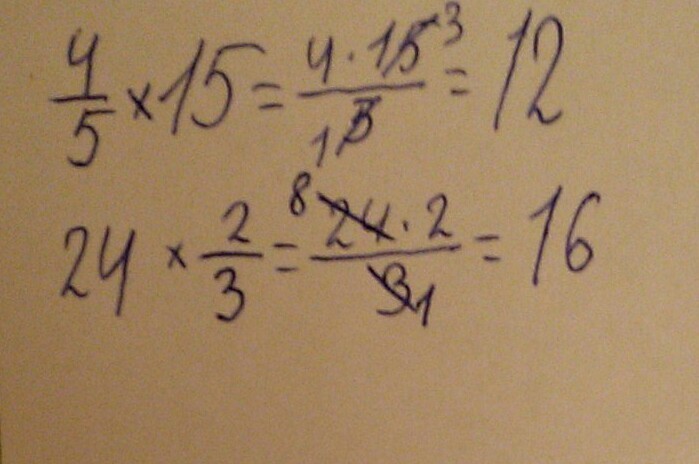 4/5 × 15 = 4 · 15 3 / 1 5 = 12
24 × 2/3 = 8 24 · 2 / 3 1 = 16